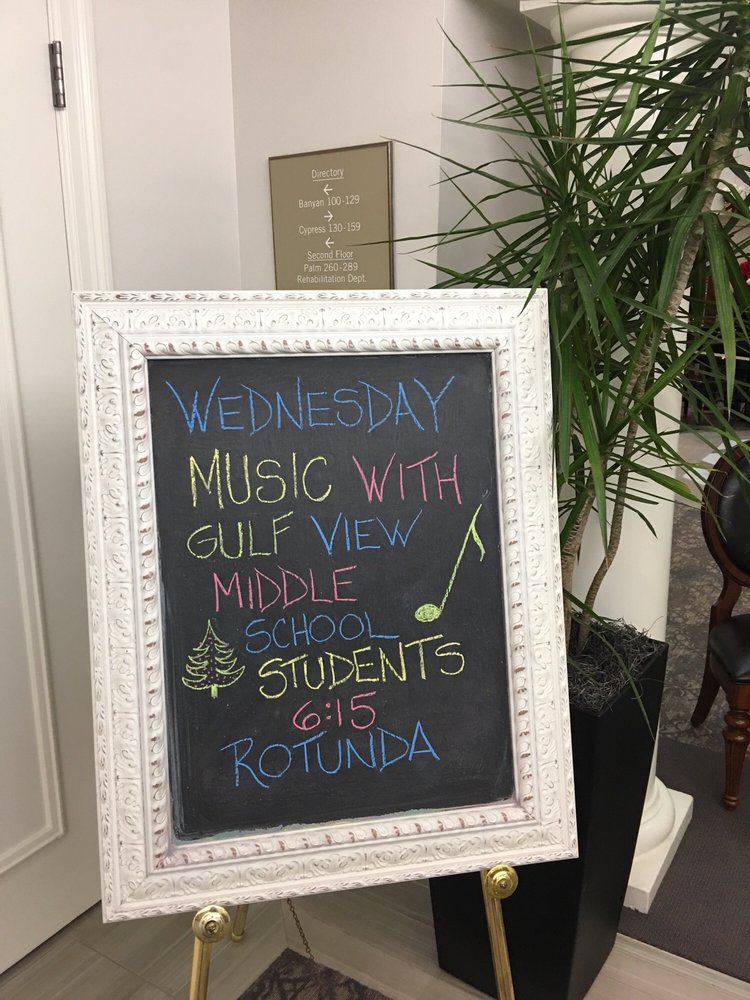 Directory
←
Banyan 100-129
→
Cypress 130-159
←
Second Floor
Palm 260-289
Rehabilitation Dept.
WEDNESDAY
MUSIC WITH
GULF VIEW
MIDDLE
SCHOOL
STUDENTS
6:15
ROTUNDA